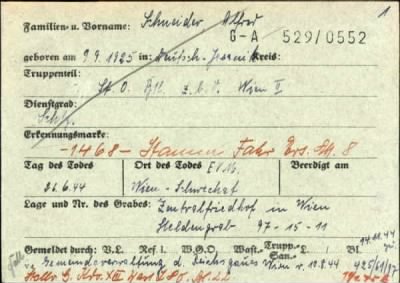 1
Familien- u. Vorname: Schneider Alfred
G-A 529/0552
geboren am 9.9.1925 in: Deutsch- Kreis:
Truppenteil:
St. O. Btl. z.b.V. Wien II
Dienstgrad:
Schtz.
Erkennungsmarke:
-1468- Stamm Fahr Ers. Abt. 8
Tag des Todes Ort des Todes Beerdigt am
26.6.44 Wien-Schwechat
Lage und Nr. des Grabes: Zentralfriedhof in Wien
Heldengrab: 97-15-11
Gemeldet durch: V.L. Ref. i. W.G.O. Wast.- Trupp.- San.- L. Bl.
Gemeindeverwaltung d. Reichsgaues Wien v. 10.8.44 425/61/97